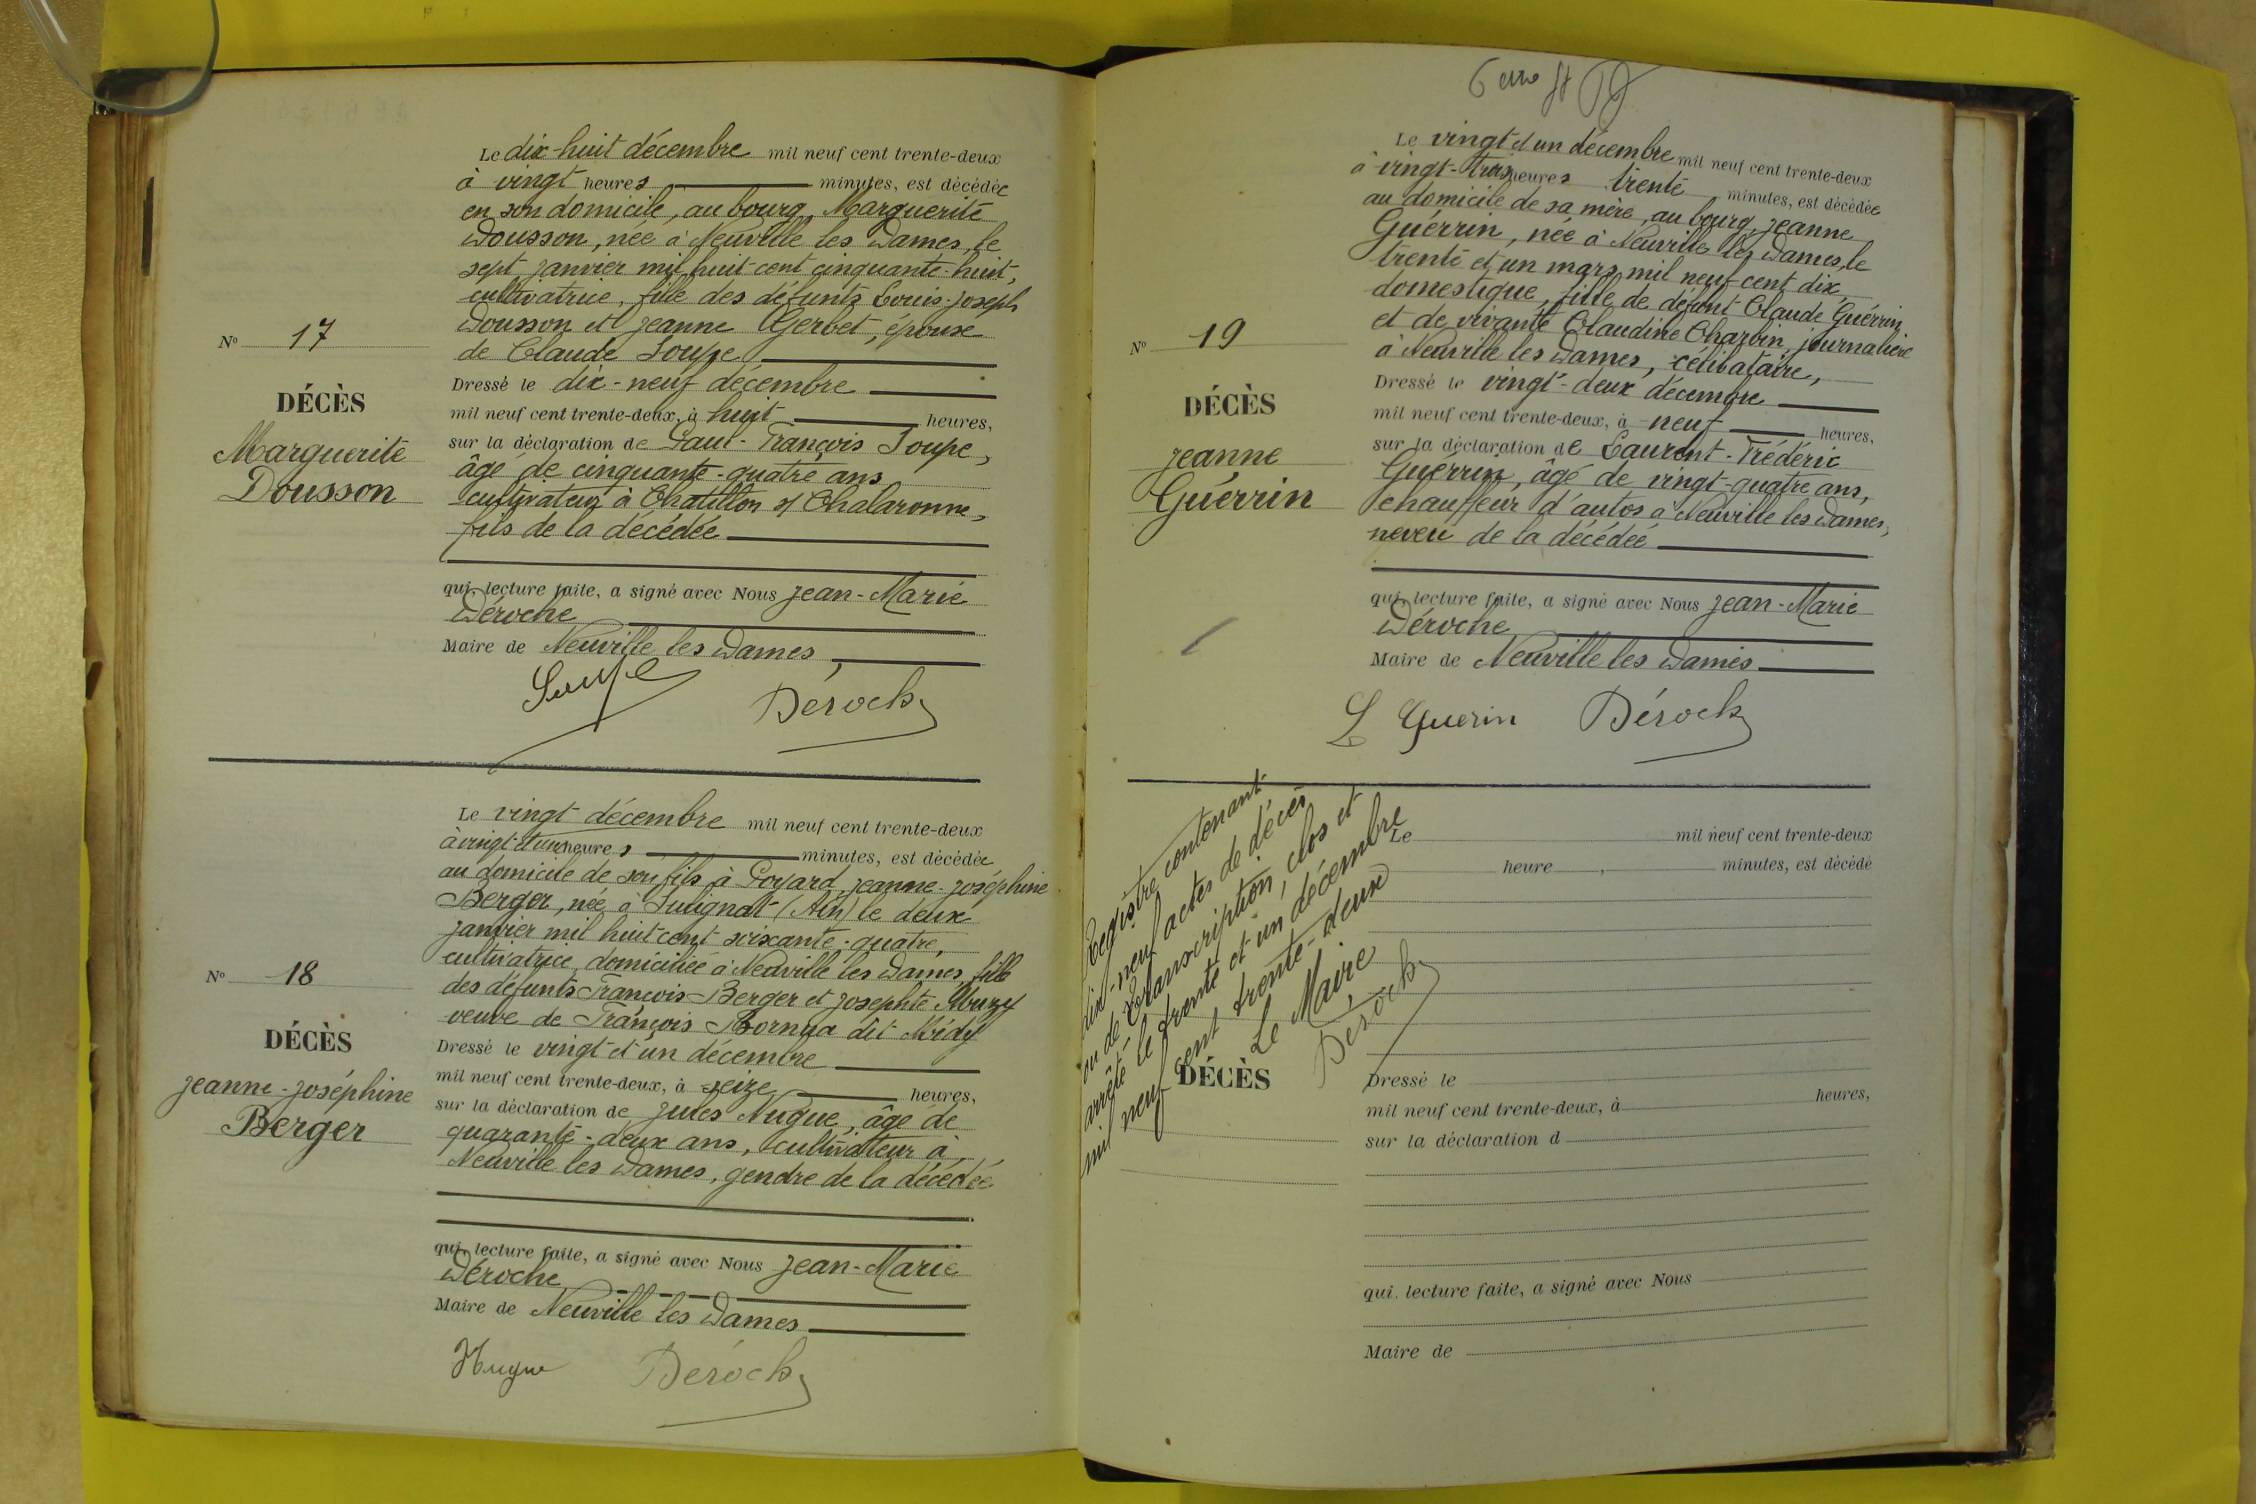 Le dix-huit décembre mil neuf cent trente-deux
à vingt heures minutes, est décédée
en son domicile, au bourg, Marguerite
Dousson, née à Neuville les Dames, le
sept janvier mil huit cent cinquante-huit,
cultivatrice, fille des défunts Louis-Joseph
Dousson et Jeanne Gerbet, épouse
de Claude Soupe
Nº 17
DÉCÈS
Marguerite
Dousson
Dressé le dix-neuf décembre
mil neuf cent trente-deux, à huit heures,
sur la déclaration de Paul-François Soupe,
âgé de cinquante-quatre ans
cultivateur à Chatillon s/ Chalaronne,
fils de la décédée
qui, lecture faite, a signé avec Nous Jean-Marie
Déroche
Maire de Neuville les Dames,
Soupe Déroche
Le vingt décembre mil neuf cent trente-deux
à vingt et une heures minutes, est décédée
au domicile de son fils à Poyard, Jeanne-Joséphine
Berger, née à Sulignat (Ain) le deux
janvier mil huit cent soixante-quatre,
cultivatrice, domiciliée à Neuville les Dames, fille
des défunts François Berger et Josephte
veuve de François dit Midy
Nº 18
DÉCÈS
Jeanne-Joséphine
Berger
Dressé le vingt et un décembre
mil neuf cent trente-deux, à seize heures,
sur la déclaration de Jules Nugue, âgé de
quarante-deux ans, cultivateur à
Neuville les Dames, gendre de la décédée
qui, lecture faite, a signé avec Nous Jean-Marie
Déroche
Maire de Neuville les Dames
Nugue Déroche
Le vingt et un décembre mil neuf cent trente-deux
à vingt-trois heures trente minutes, est décédée
au domicile de sa mère, au bourg, Jeanne
Guérrin, née à Neuville les Dames, le
trente et un mars mil neuf cent dix,
domestique, fille de défunt Claude Guérrin
et de vivante Claudine Charbin, journalière
à Neuville les Dames, célibataire,
Nº 19
DÉCÈS
Jeanne
Guérrin
Dressé le vingt-deux décembre
mil neuf cent trente-deux, à neuf heures,
sur la déclaration de Laurent-Frédéric
Guérrin, âgé de vingt-quatre ans,
chauffeur d'autos à Neuville les Dames,
neveu de la décédée
qui, lecture faite, a signé avec Nous Jean-Marie
Déroche
Maire de Neuville les Dames
L Guerin Déroche
Registre contenant
dix-neuf actes de décès
ou de transcription, clos et
arrêté le trente et un décembre
mil neuf cent trente-deux
Le Maire
Déroche
Le mil neuf cent trente-deux
heure , minutes, est décédé
DÉCÈS
Dressé le
mil neuf cent trente-deux, à heures,
sur la déclaration d
qui, lecture faite, a signé avec Nous
Maire de